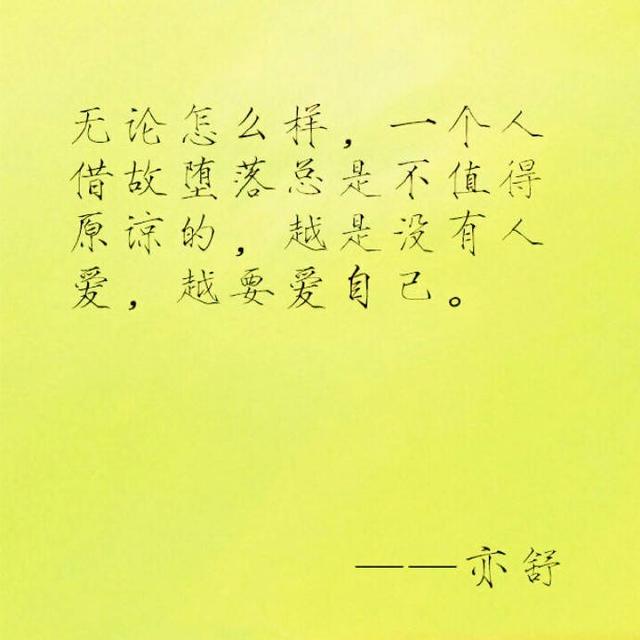 无论怎么样，一个人
借故堕落总是不值得
原谅的，越是没有人
爱，越要爱自己。
——亦舒